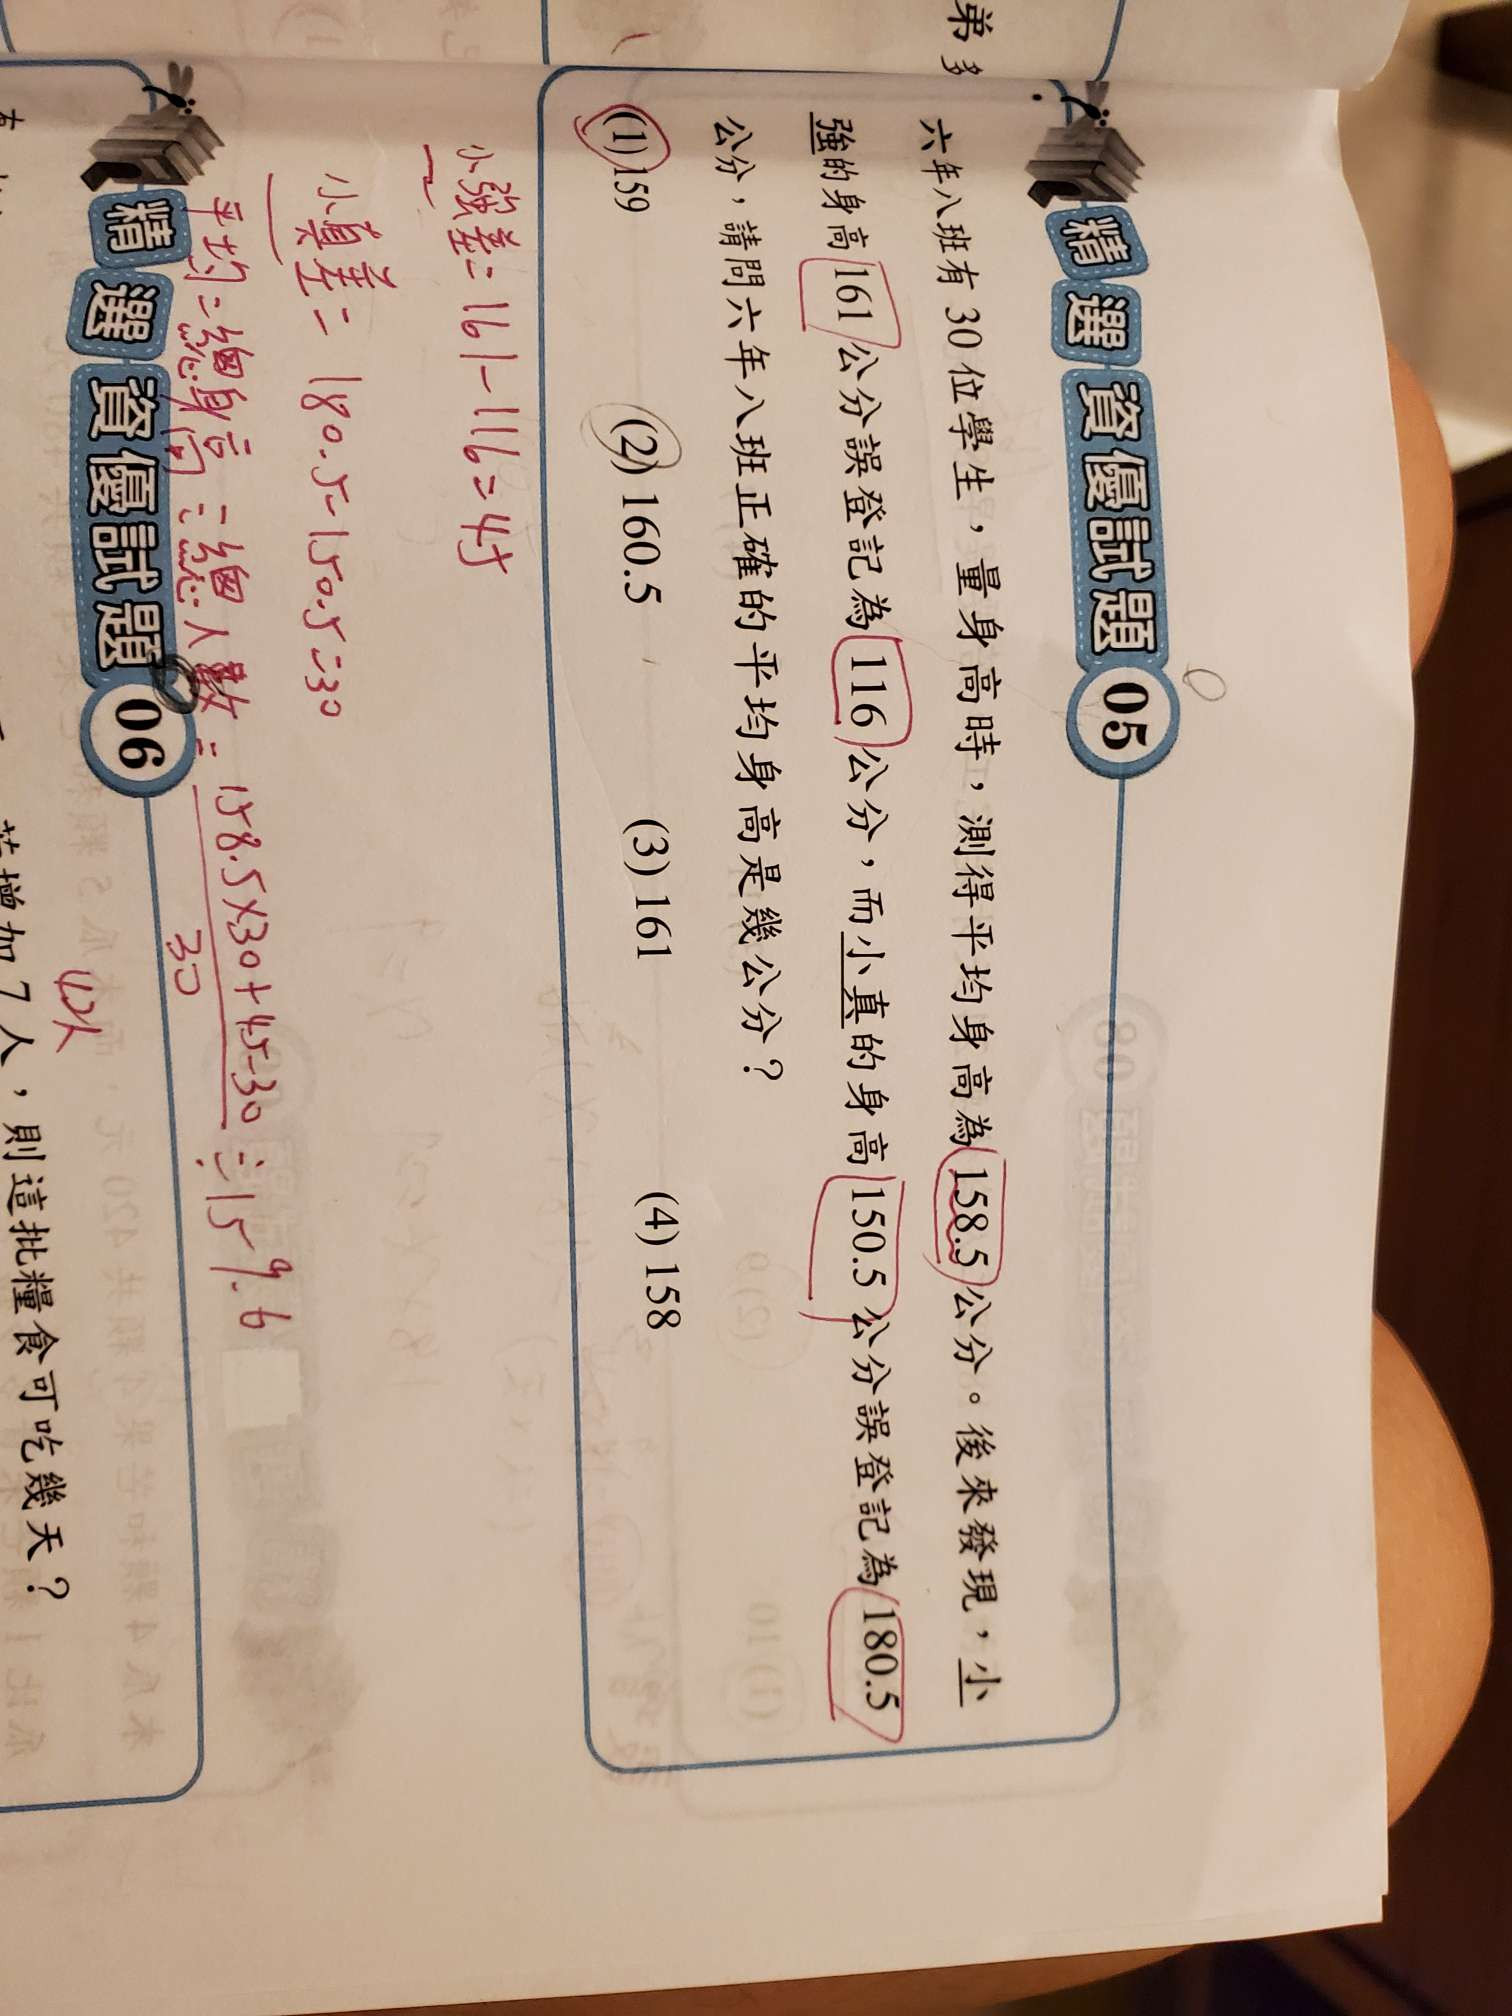 弟多
精選資優試題05
六年八班有30位學生，量身高時，測得平均身高為158.5公分。後來發現，小
強的身高161公分誤登記為116公分，而小真的身高150.5公分誤登記為180.5
公分，請問六年八班正確的平均身高是幾公分？
(1)159 (2)160.5 (3)161 (4)158
小強差=161-116=45
小真差=180.5-150.5=30
平均=總身高÷總人數=158.5×30+45-30
30
精選資優試題06
增加7人，則這批糧食可吃幾天？